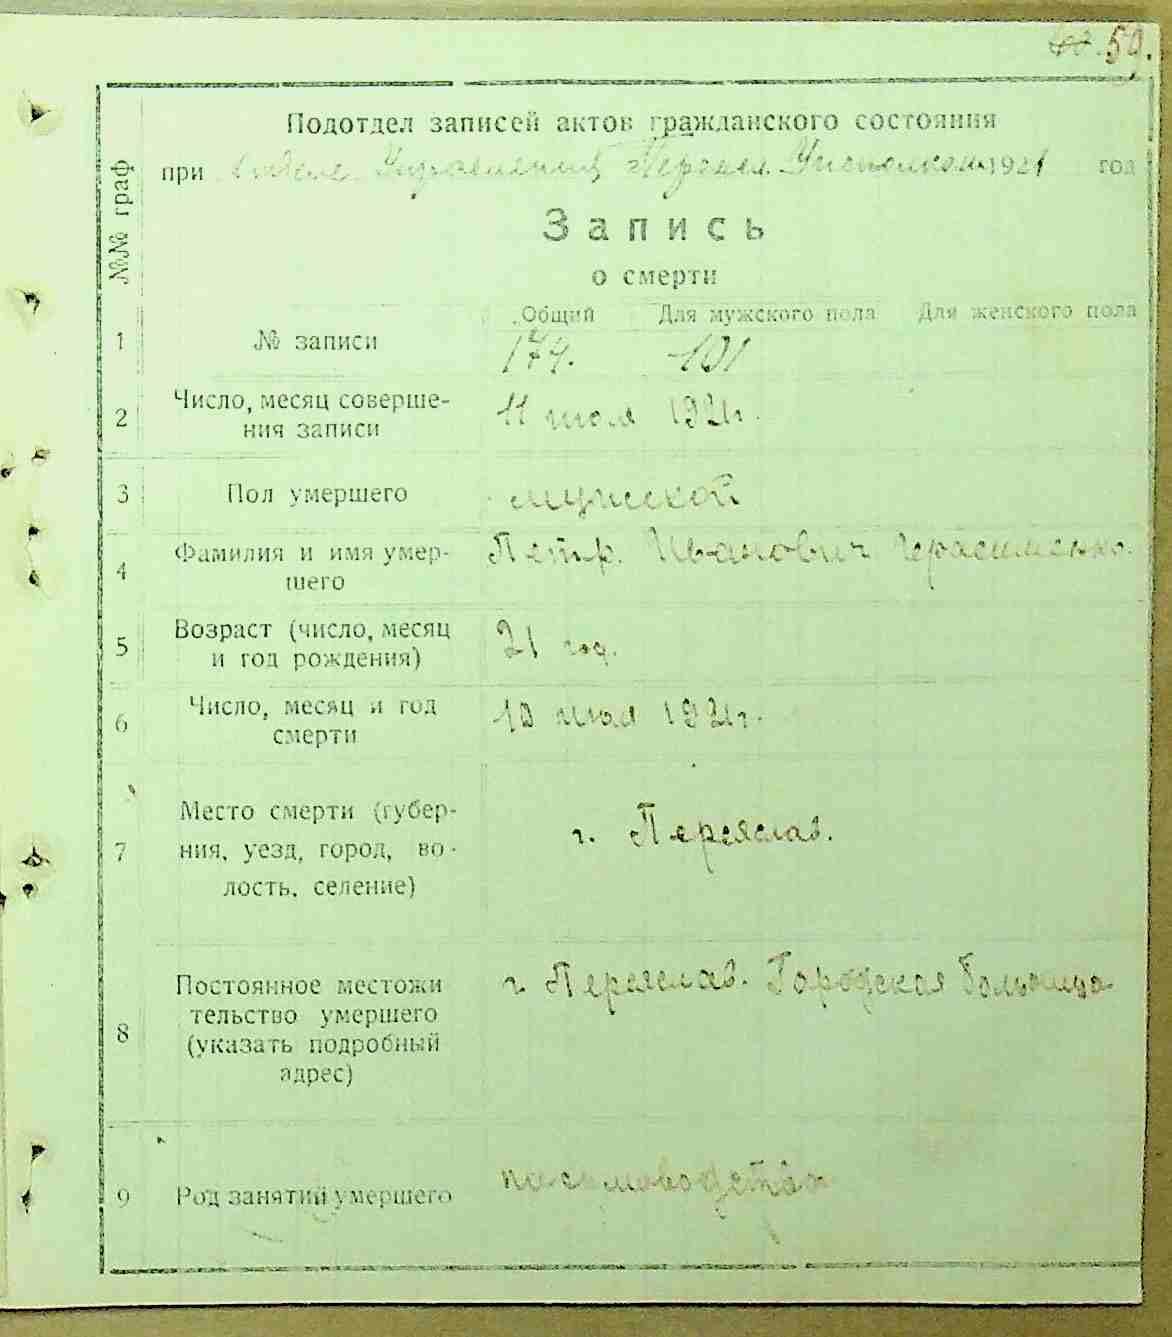 50.
Подотдел записей актов гражданского состояния
при Отделе Управления Переясл. Уисполкома 1921 год
№№ граф
Запись
о смерти
Общий Для мужского пола Для женского пола
1 № записи 174. 101
2 Число, месяц соверше-
ния записи
11 июля 1921г.
3 Пол умершего мужской
4 Фамилия и имя умер-
шего
Петр. Иванович Герасименко.
5 Возраст (число, месяц
и год рождения)
21 год.
6 Число, месяц и год
смерти
10 июля 1921г.
7 Место смерти (губер-
ния, уезд, город, во-
лость, селение)
г. Переяслав.
8 Постоянное местожи
тельство умершего
(указать подробный
адрес)
г. Переяслав. Городская больница
9 Род занятий умершего